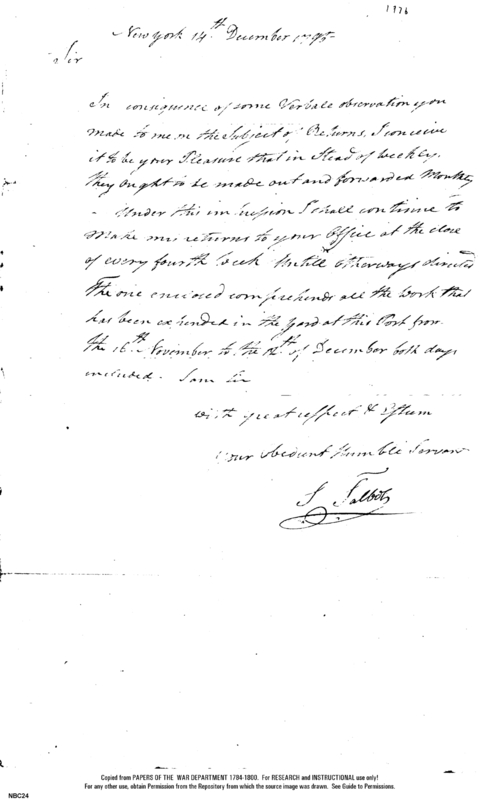 1776
New york 14th December 1795
Sir
In consequence of some Verbale observation you
made to me on the Subject of Returns, I conceive
it to be your Pleasure that in Stead of weekly.
they ought to be made out and forwarded Monthly
- Under this impression I shall continue to
make my returns to your Office at the close
of every fourth week untill otherways directed
The one enclosed comprehends all the work that
has been expended in the yard at this Port from
the 16th November to the 12th of December both days
included. I am Sir
with great respect & Esteem
Your obedient Humble Servant
S Talbot
Copied from PAPERS OF THE WAR DEPARTMENT 1784-1800. For RESEARCH and INSTRUCTIONAL use only!
For any other use, obtain Permission from the Repository from which the source image was drawn. See Guide to Permissions.
NBC24